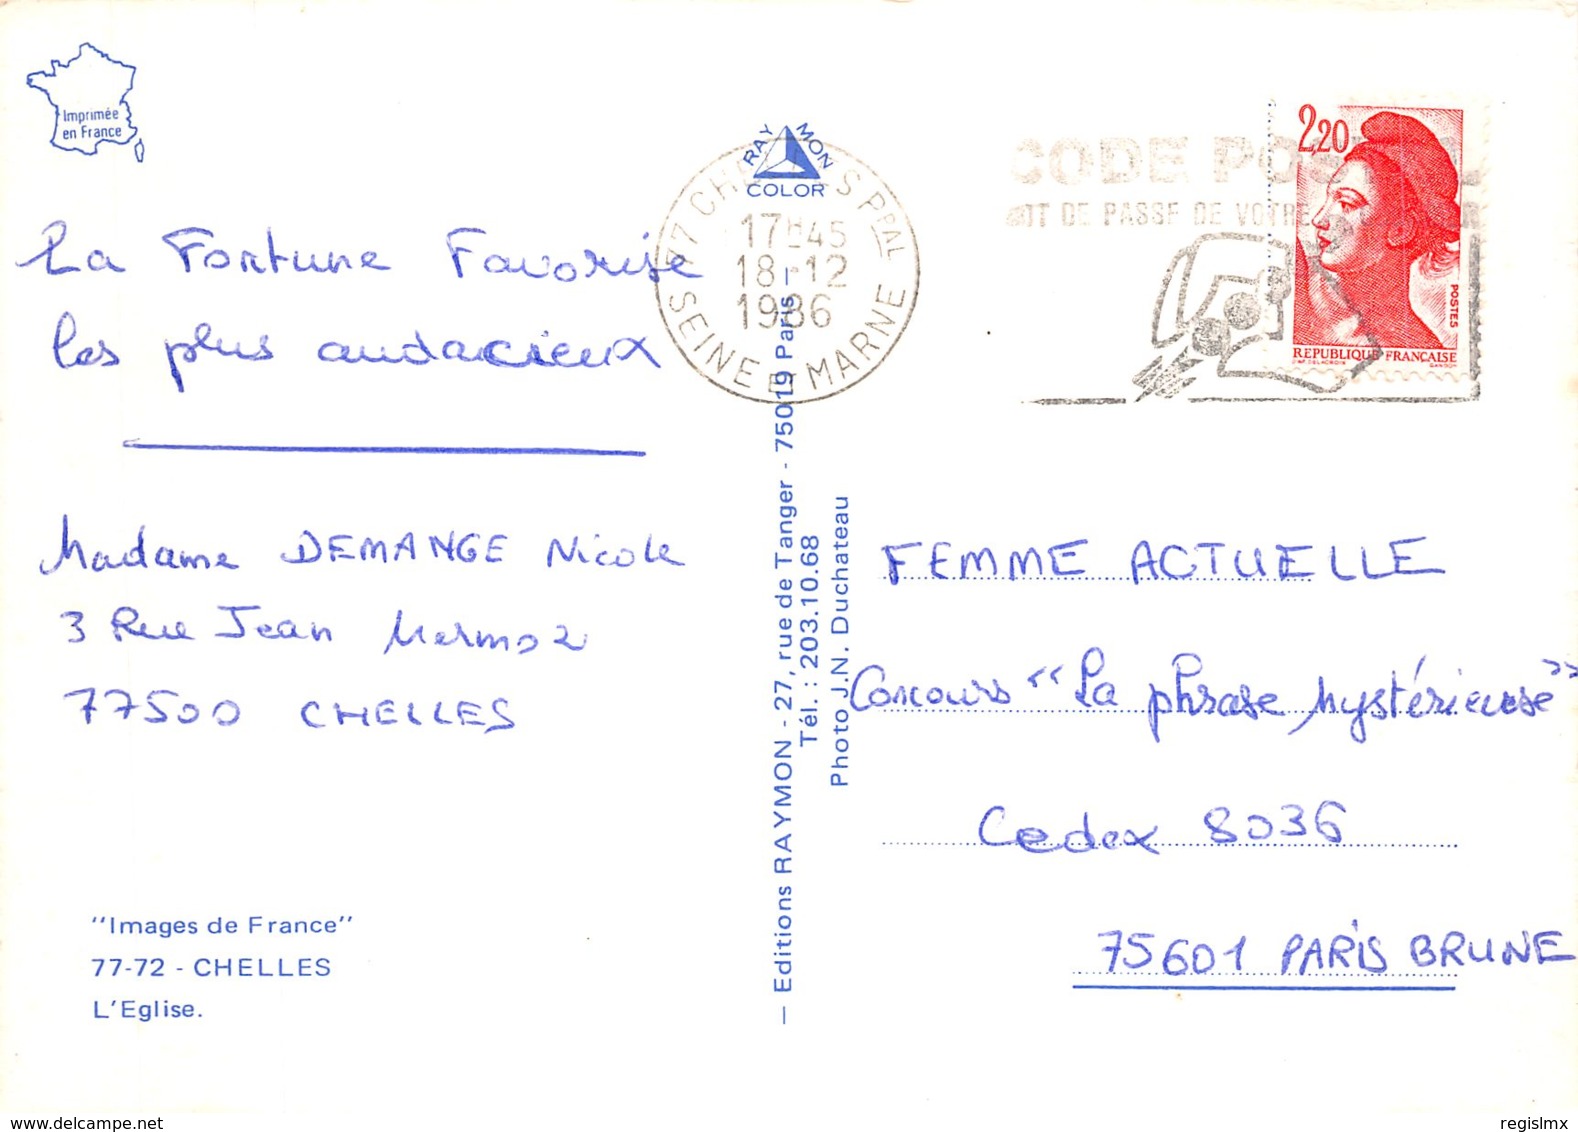 Imprimée
en France
RAYMON
COLOR
CODE
DE PASSE DE VOTRE
2,20
POSTES
REPUBLIQUE FRANÇAISE
17H45
18-12
1986
SEINE ET MARNE
La Fortune Favorise
les plus audacieux
Madame DEMANGE Nicole
3 Rue Jean Mermoz
77500 CHELLES
"Images de France"
77-72 - CHELLES
L'Eglise.
— Editions RAYMON - 27, rue de Tanger - 75019 Paris —
Tél. : 203.10.68
Photo J.N. Duchateau
FEMME ACTUELLE
Concours "La phrase Mystérieuse"
Cedex 8036
75601 PARIS BRUNE
regislmx